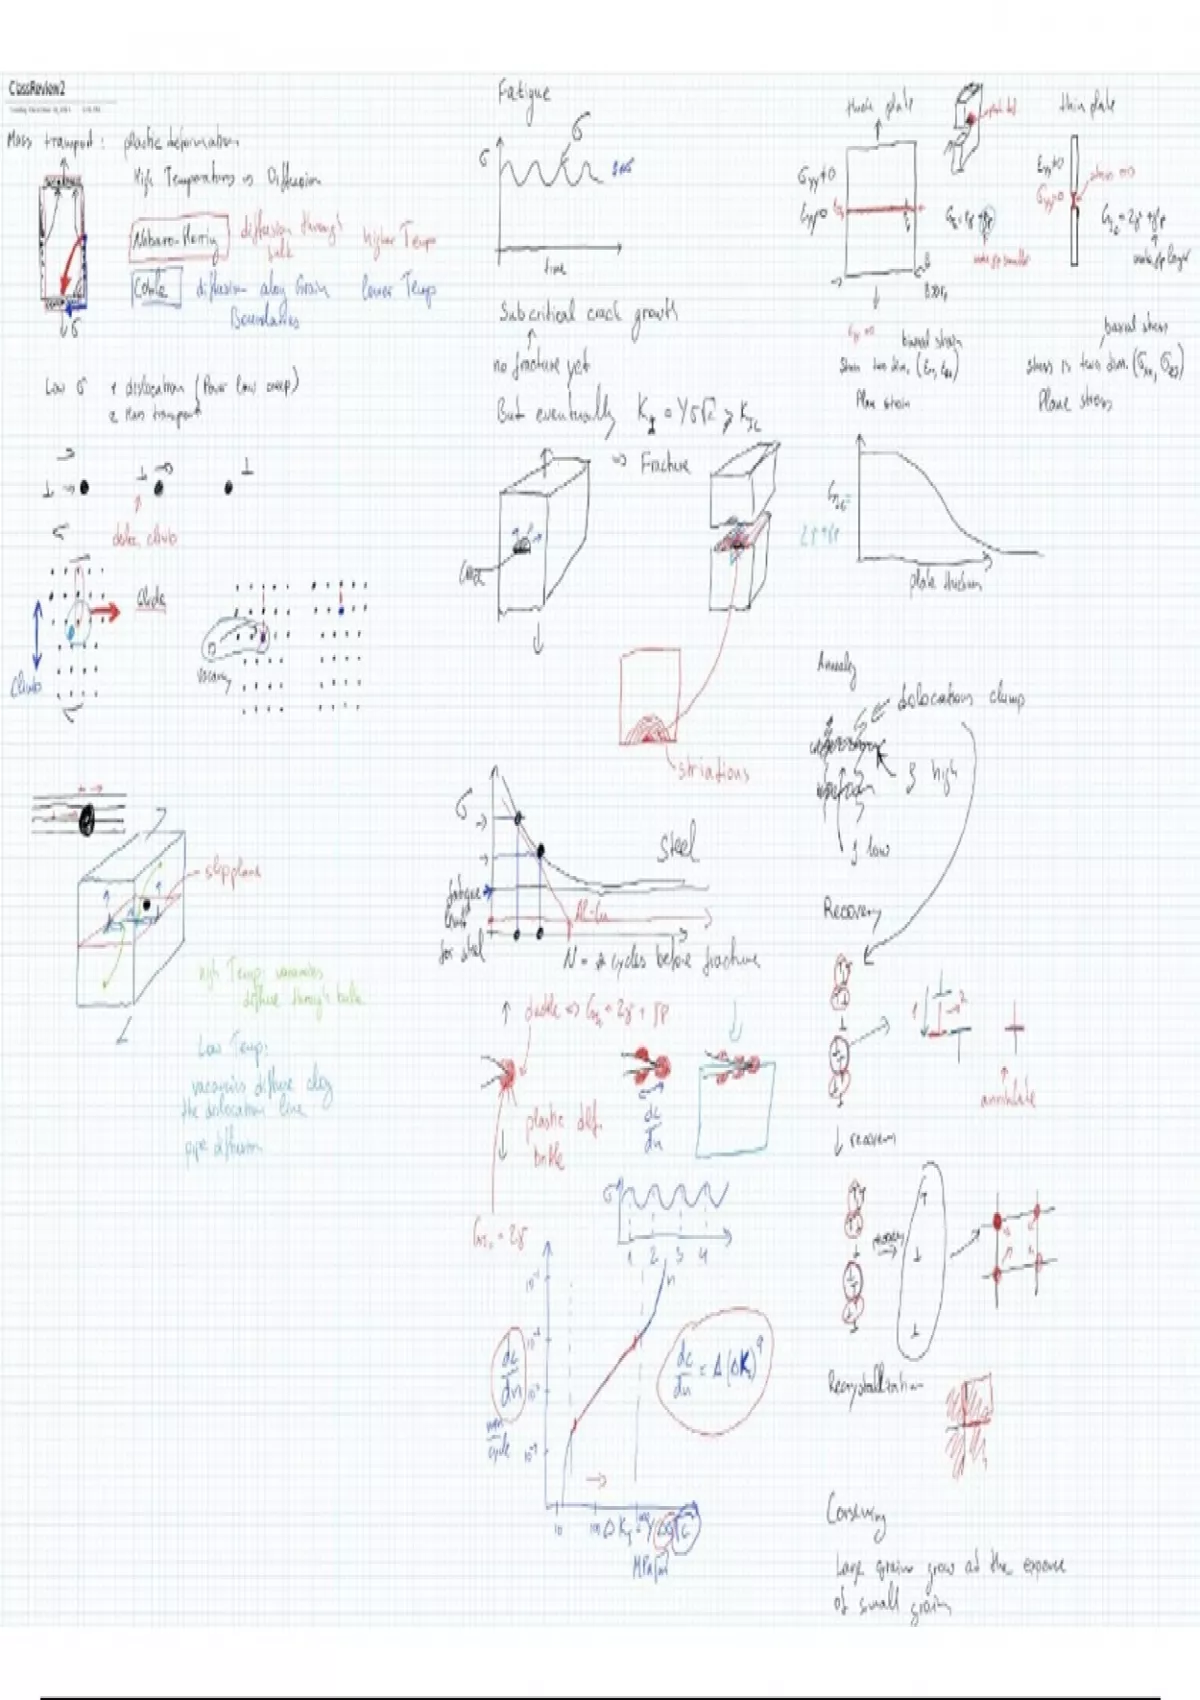 ClassReview2
Mass transport: plastic deformation
High Temperatures => Diffusion
Nabarro-Herring diffusion through bulk higher Temp
Coble diffusion along Grain Boundaries lower Temp
σ
Low σ
dislocation (Power law creep)
2 mass transport
climb
Glide
Climb
vacancy
slip plane
high Temp: vacancies
diffuse through bulk
Low Temp:
vacancies diffuse along
the dislocation line
pipe diffusion
Fatigue
σ
σ
time
Subcritical crack growth
no fracture yet
But eventually K_I = Yσ√c ≥ K_Ic
=> Fracture
striations
σ
Steel
fatigue
limit
for steel
Al-Cu
N = # cycles before fracture
ductile => G_Ic = 2γ + γp
plastic def.
brittle
dc
dn
G_Ic = 2γ
σ
1 2 3 4
dc
dn
mm
cycle
dc/dn = A(ΔK)^q
10 100
MPa√m
thick plate
thin plate
make γp smaller
make γp larger
biaxial strain
Plane strain
biaxial stress
stress in two dim.
Plane stress
2γ+γp
plate thickness
dislocations clump
ρ high
ρ low
Recovery
1
2
annihilate
recovery
Recrystallization
Large grains grow at the expense
of small grains